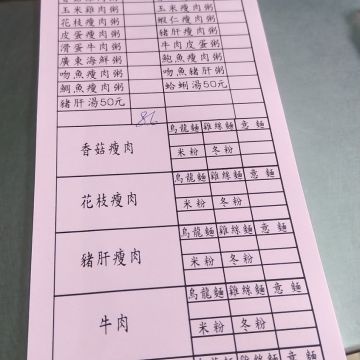 玉米雞肉粥 玉米瘦肉粥
花枝瘦肉粥 蝦仁瘦肉粥
皮蛋瘦肉粥 豬肝瘦肉粥
滑蛋牛肉粥 牛肉皮蛋粥
廣東海鮮粥 鮑魚瘦肉粥
吻魚瘦肉粥 吻魚豬肝粥
鯛魚瘦肉粥 蛤蜊湯50元
豬肝湯50元
86
香菇瘦肉 烏龍麵 雞絲麵 意麵
米粉 冬粉
花枝瘦肉 烏龍麵 雞絲麵 意麵
米粉 冬粉
豬肝瘦肉 烏龍麵 雞絲麵 意麵
米粉 冬粉
牛肉 烏龍麵 雞絲麵 意麵
米粉 冬粉